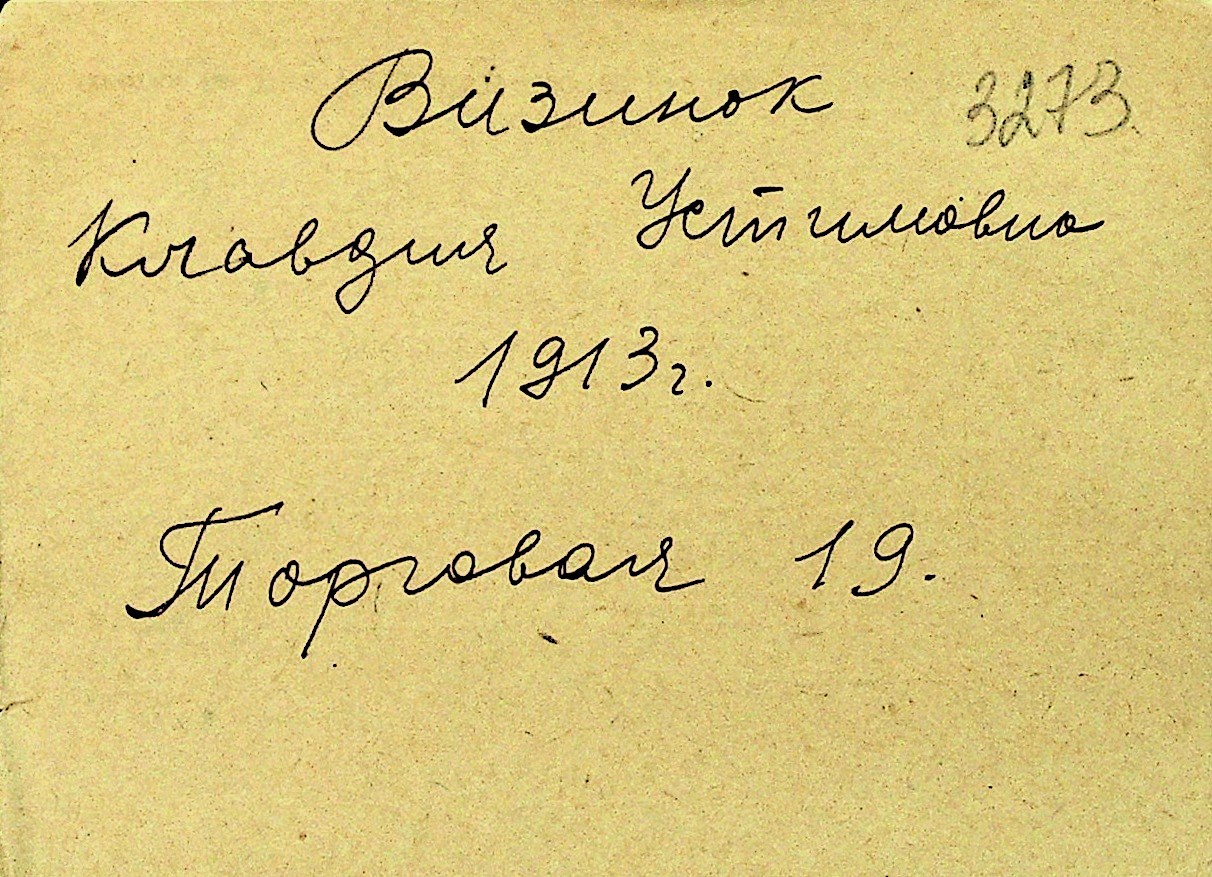 Визинок 3273
Клавдия Устимовна
1913г.
Торговая 19.